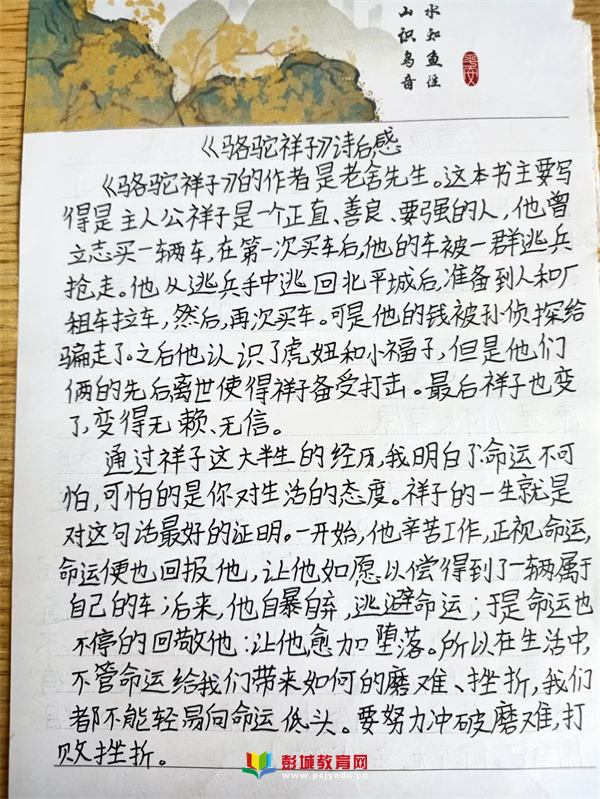 水知鱼性
山识鸟音
《骆驼祥子》读后感
《骆驼祥子》的作者是老舍先生。这本书主要写
得是主人公祥子是一个正直、善良、要强的人,他曾
立志买一辆车,在第一次买车后,他的车被一群逃兵
抢走。他从逃兵手中逃回北平城后,准备到人和厂
租车拉车,然后,再次买车。可是他的钱被孙侦探给
骗走了。之后他认识了虎妞和小福子,但是他们
俩的先后离世使得祥子备受打击。最后祥子也变
了,变得无赖、无信。
通过祥子这大半生的经历,我明白了:命运不可
怕,可怕的是你对生活的态度。祥子的一生就是
对这句话最好的证明。一开始,他辛苦工作,正视命运,
命运便也回报他,让他如愿以偿得到了一辆属于
自己的车;后来,他自暴自弃,逃避命运;于是命运也
不停的回敬他:让他愈加堕落。所以在生活中,
不管命运给我们带来如何的磨难、挫折,我们
都不能轻易向命运低头。要努力冲破磨难,打
败挫折。
彭城教育网
www.pcjyedu.cn